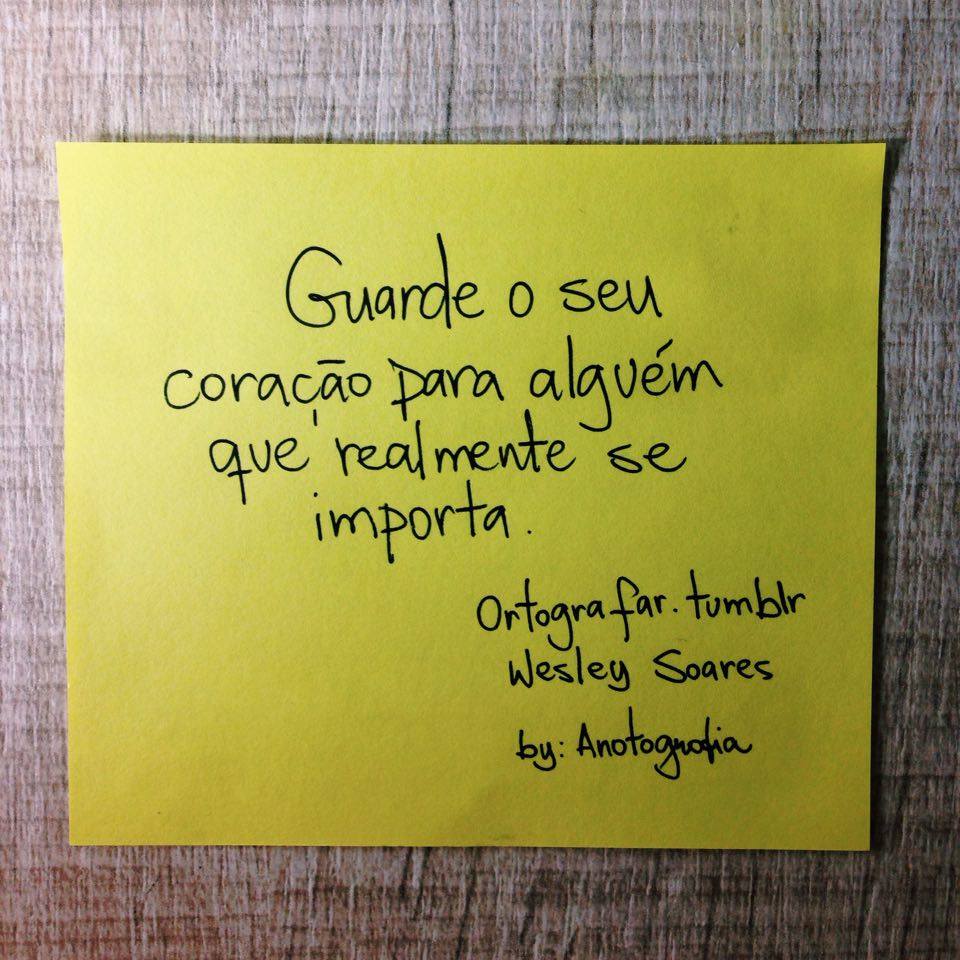 Guarde o seu
coração para alguém
que realmente se
importa.
Ortografar.tumblr
Wesley Soares
by: Anotografia